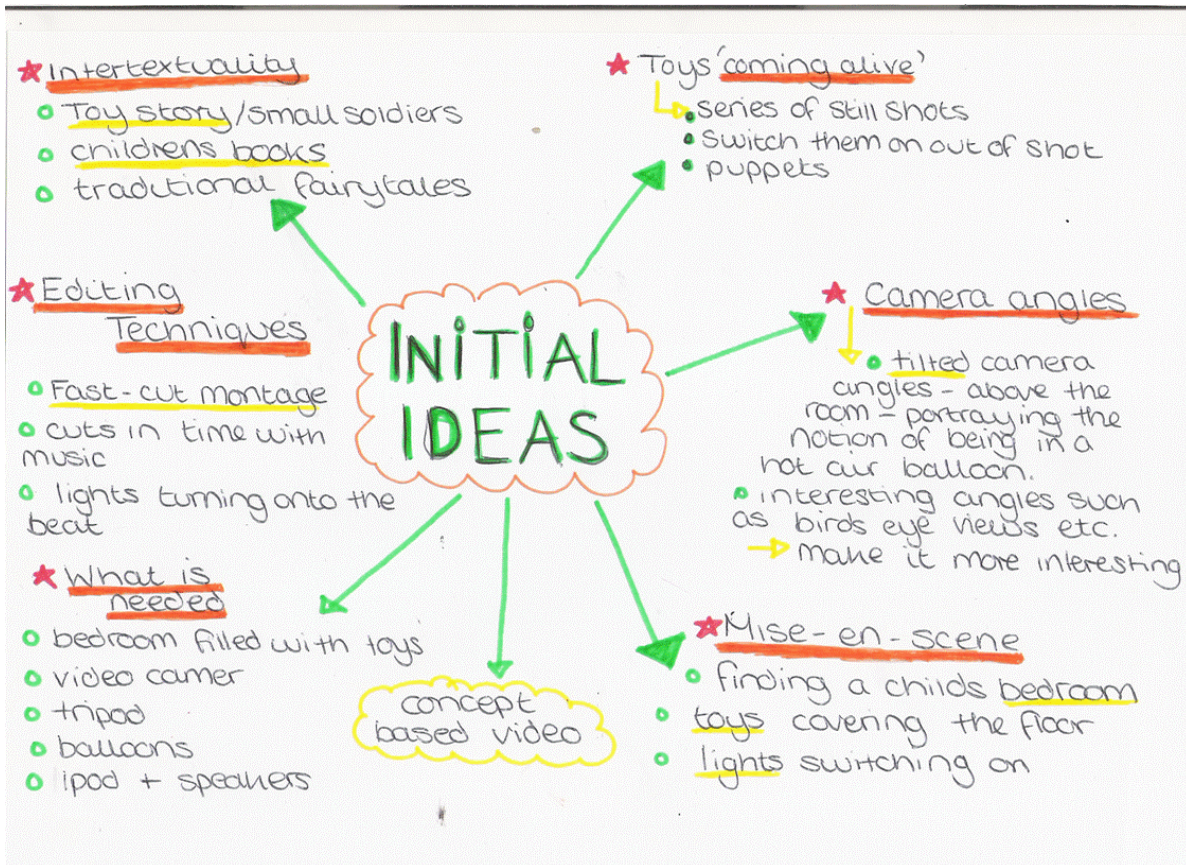 INITIAL
IDEAS
Intertextuality
Toy story/small soldiers
childrens books
traditional fairytales
Toys 'coming alive'
series of still shots
Switch them on out of shot
puppets
Editing
Techniques
Fast-cut montage
cuts in time with
music
lights turning onto the
beat
Camera angles
tilted camera
angles - above the
room - portraying the
notion of being in a
hot air balloon.
interesting angles such
as birds eye views etc.
make it more interesting
What is
needed
bedroom filled with toys
video camer
tripod
balloons
ipod + speakers
concept
based video
Mise-en-scene
finding a childs bedroom
toys covering the floor
lights switching on